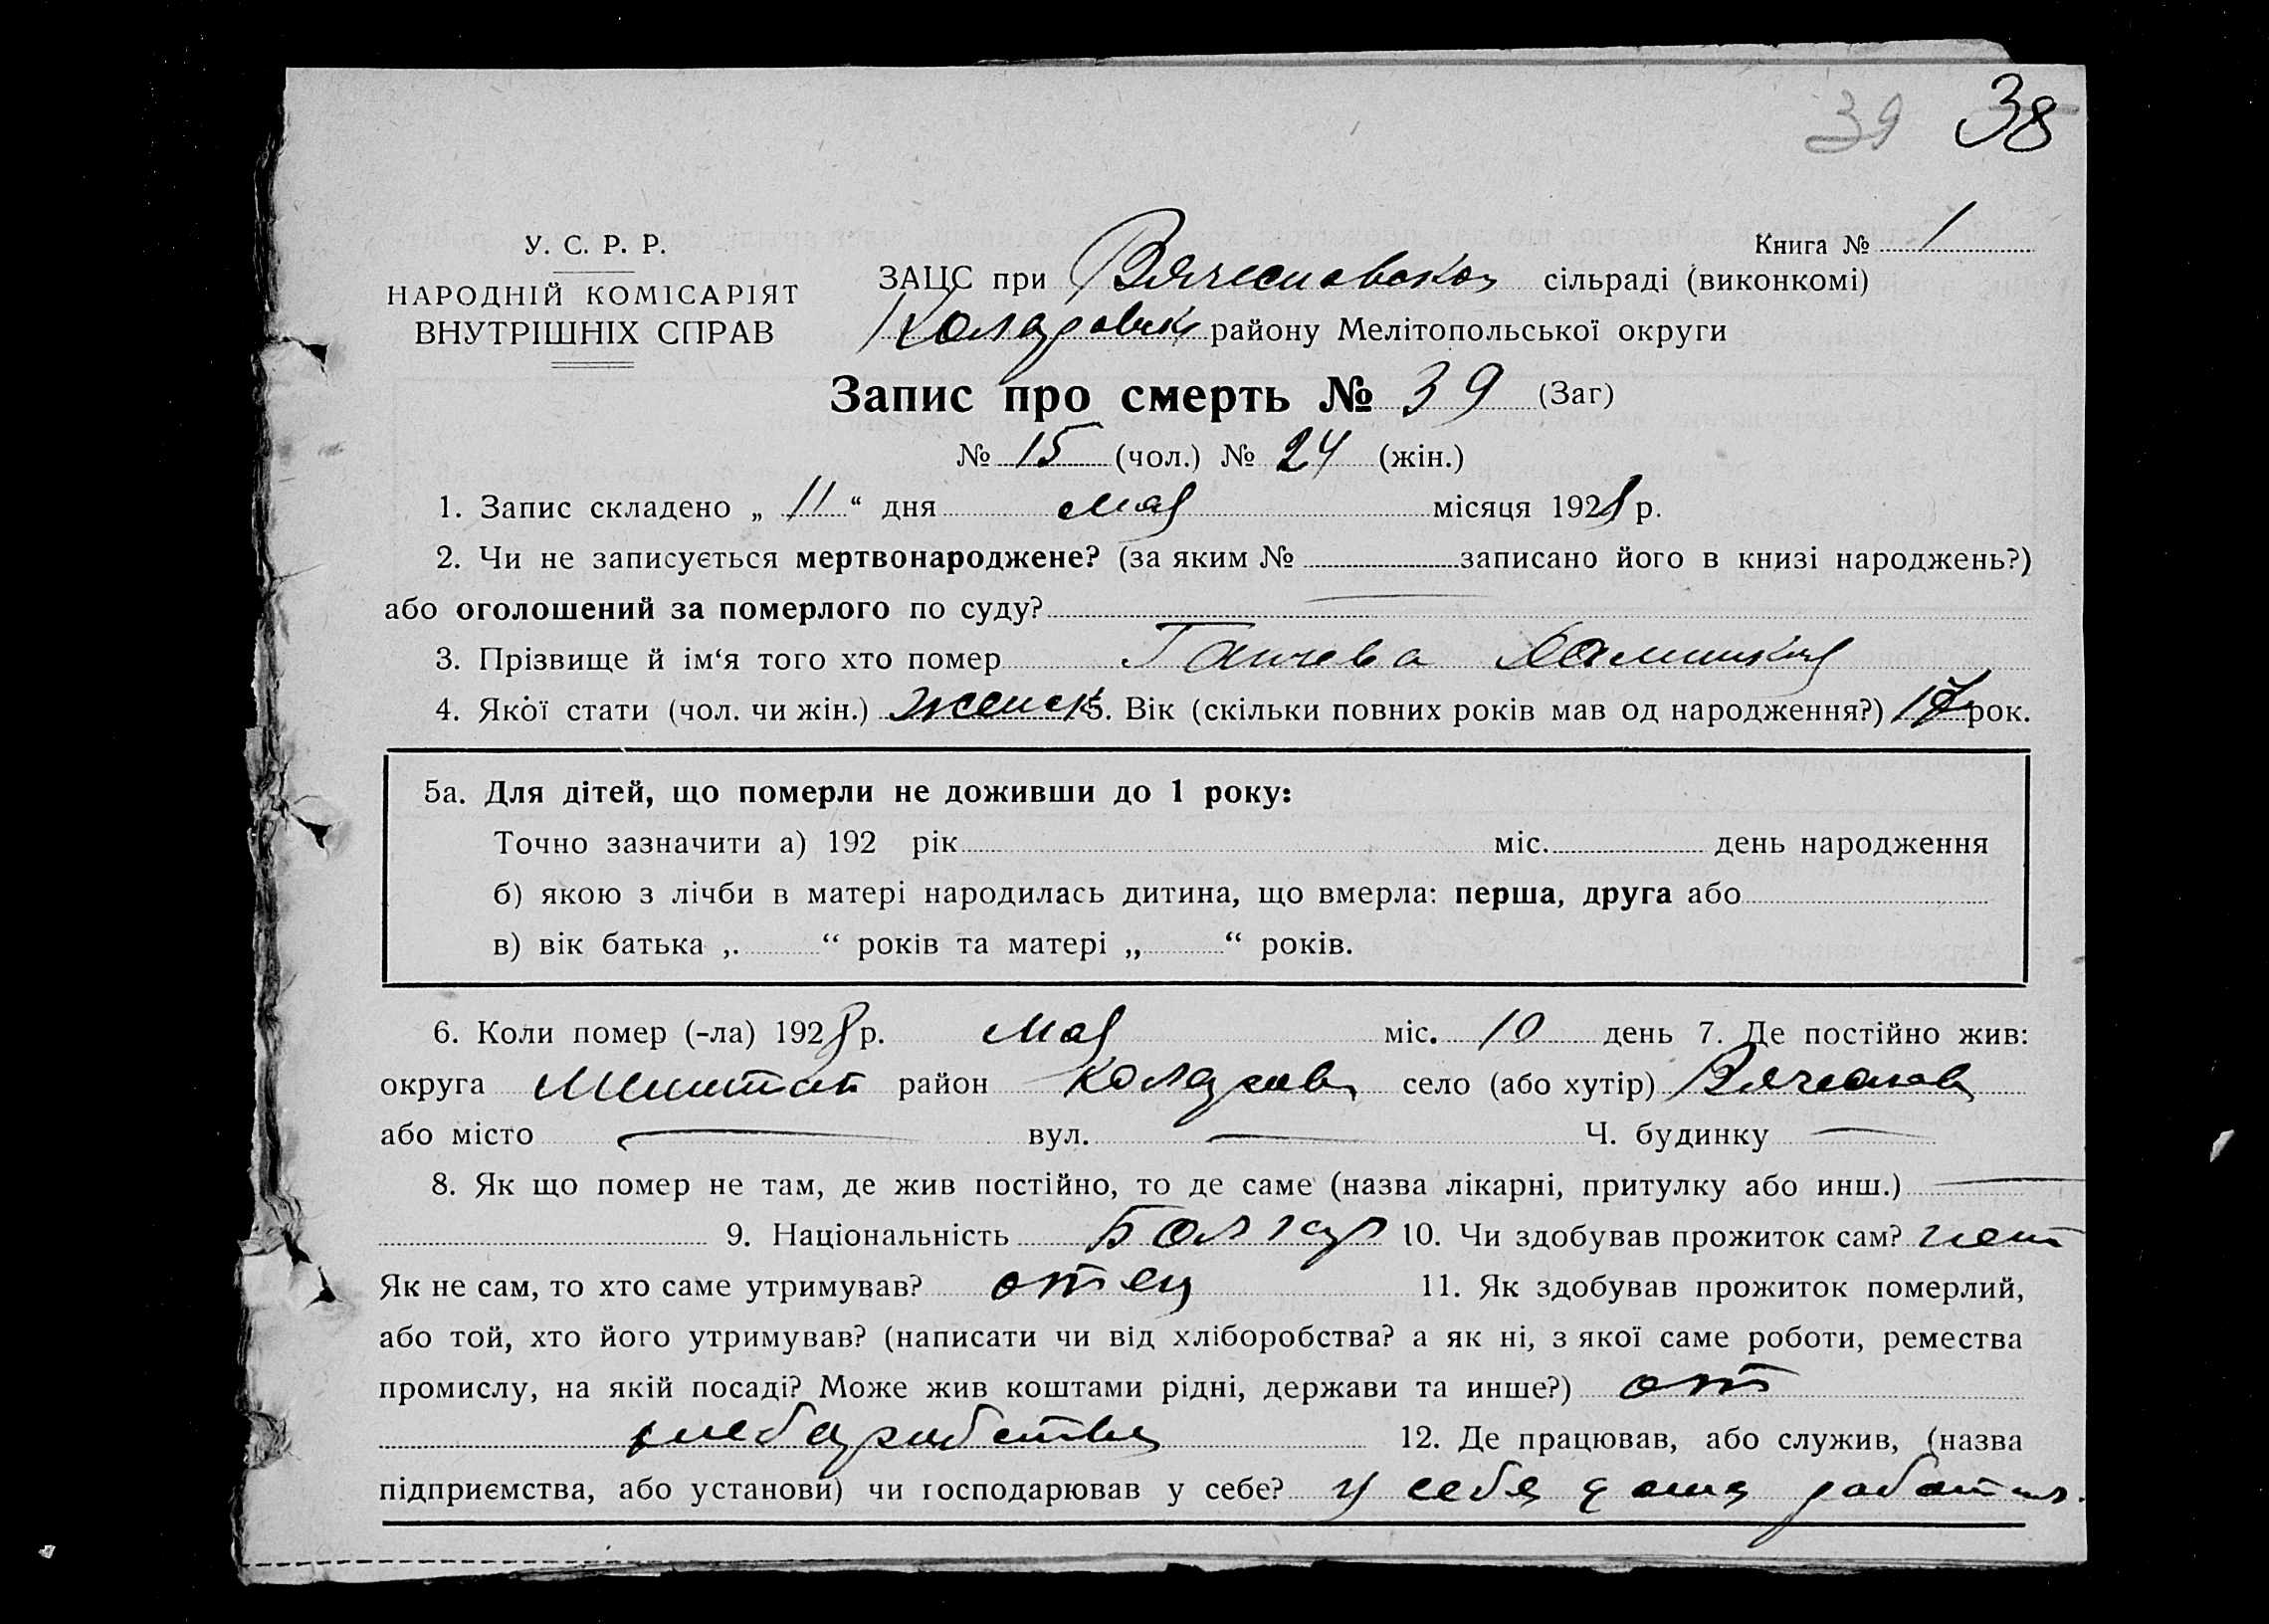 39 38
Книга № 1
У. С. Р. Р.
НАРОДНІЙ КОМІСАРІЯТ
ВНУТРІШНІХ СПРАВ
ЗАЦС при сільраді (виконкомі)
району Мелітопольської округи
Запис про смерть № 39 (Заг)
№ 15 (чол.) № 24 (жін.)
1. Запис складено „ 11 “ дня мая місяця 1928 р.
2. Чи не записується мертвонароджене? (за яким № записано його в книзі народжень?)
або оголошений за померлого по суду?
3. Прізвище й ім‘я того хто помер Ганчева
4. Якої стати (чол. чи жін.) женск 5. Вік (скільки повних років мав од народження?) рок.
5а. Для дітей, що померли не доживши до 1 року:
Точно зазначити а) 192 рік міс. день народження
б) якою з лічби в матері народилась дитина, що вмерла: перша, друга або
в) вік батька „ “ років та матері „ “ років.
6. Коли помер (-ла) 1928 р. мая міс. 10 день 7. Де постійно жив:
округа район село (або хутір)
або місто — вул. — Ч. будинку —
8. Як що помер не там, де жив постійно, то де саме (назва лікарні, притулку або инш.) —
9. Національність Болгар 10. Чи здобував прожиток сам? нет
Як не сам, то хто саме утримував? отец 11. Як здобував прожиток померлий,
або той, хто його утримував? (написати чи від хліборобства? а як ні, з якої саме роботи, ремества
промислу, на якій посаді? Може жив коштами рідні, держави та инше?) от
12. Де працював, або служив, (назва
підприємства, або установи) чи господарював у себе? у себя дома работал.